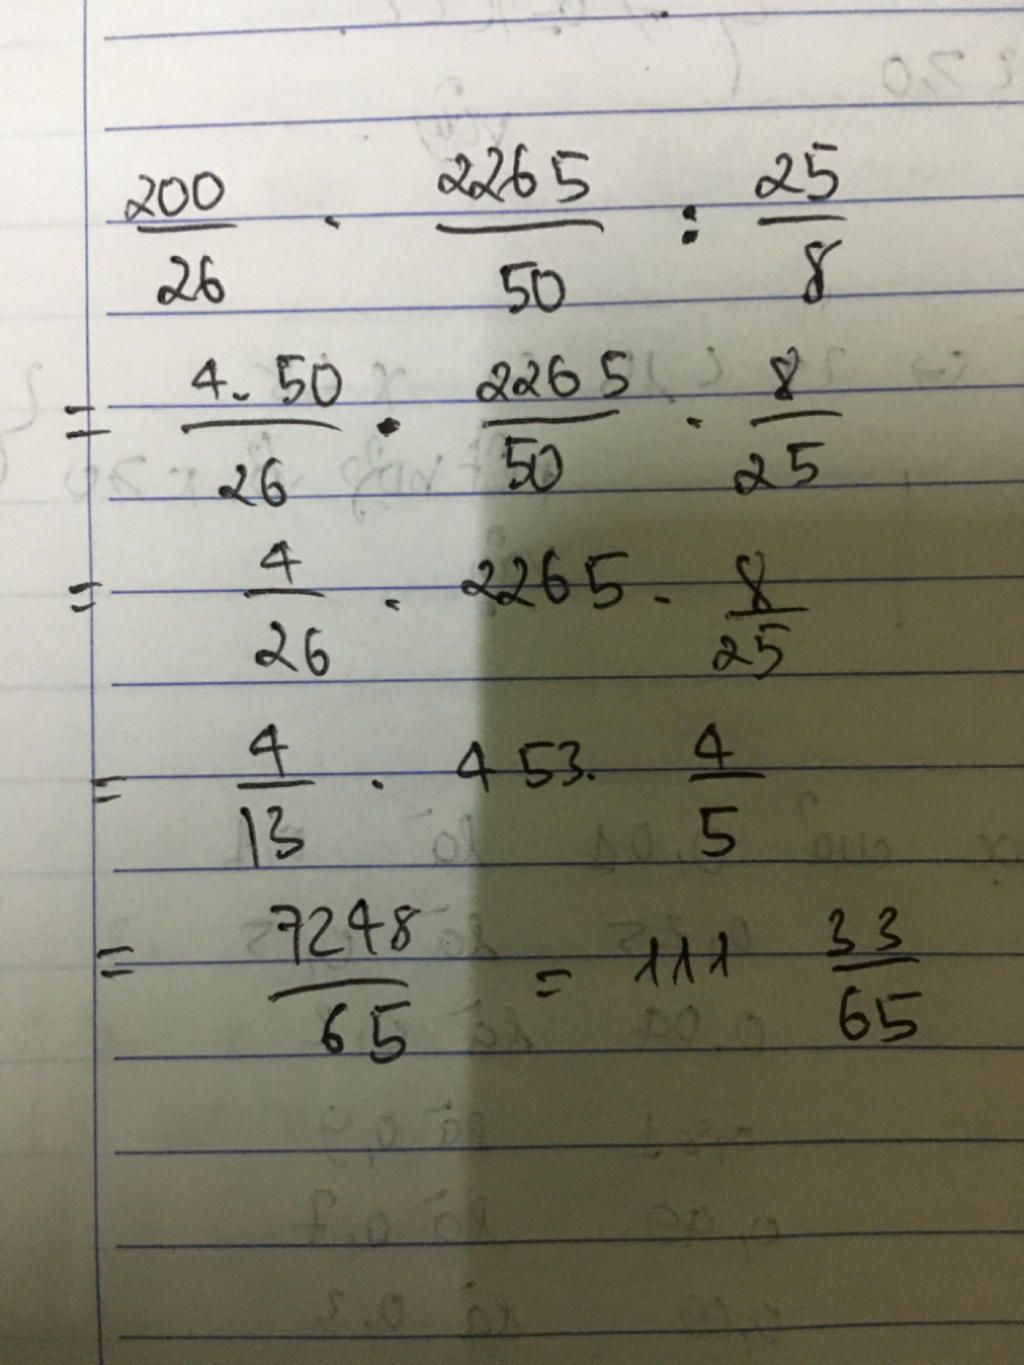 200/26 . 2265/50 : 25/8
= 4.50/26 . 2265/50 . 8/25
= 4/26 . 2265 . 8/25
= 4/13 . 453. 4/5
= 7248/65 = 111 33/65